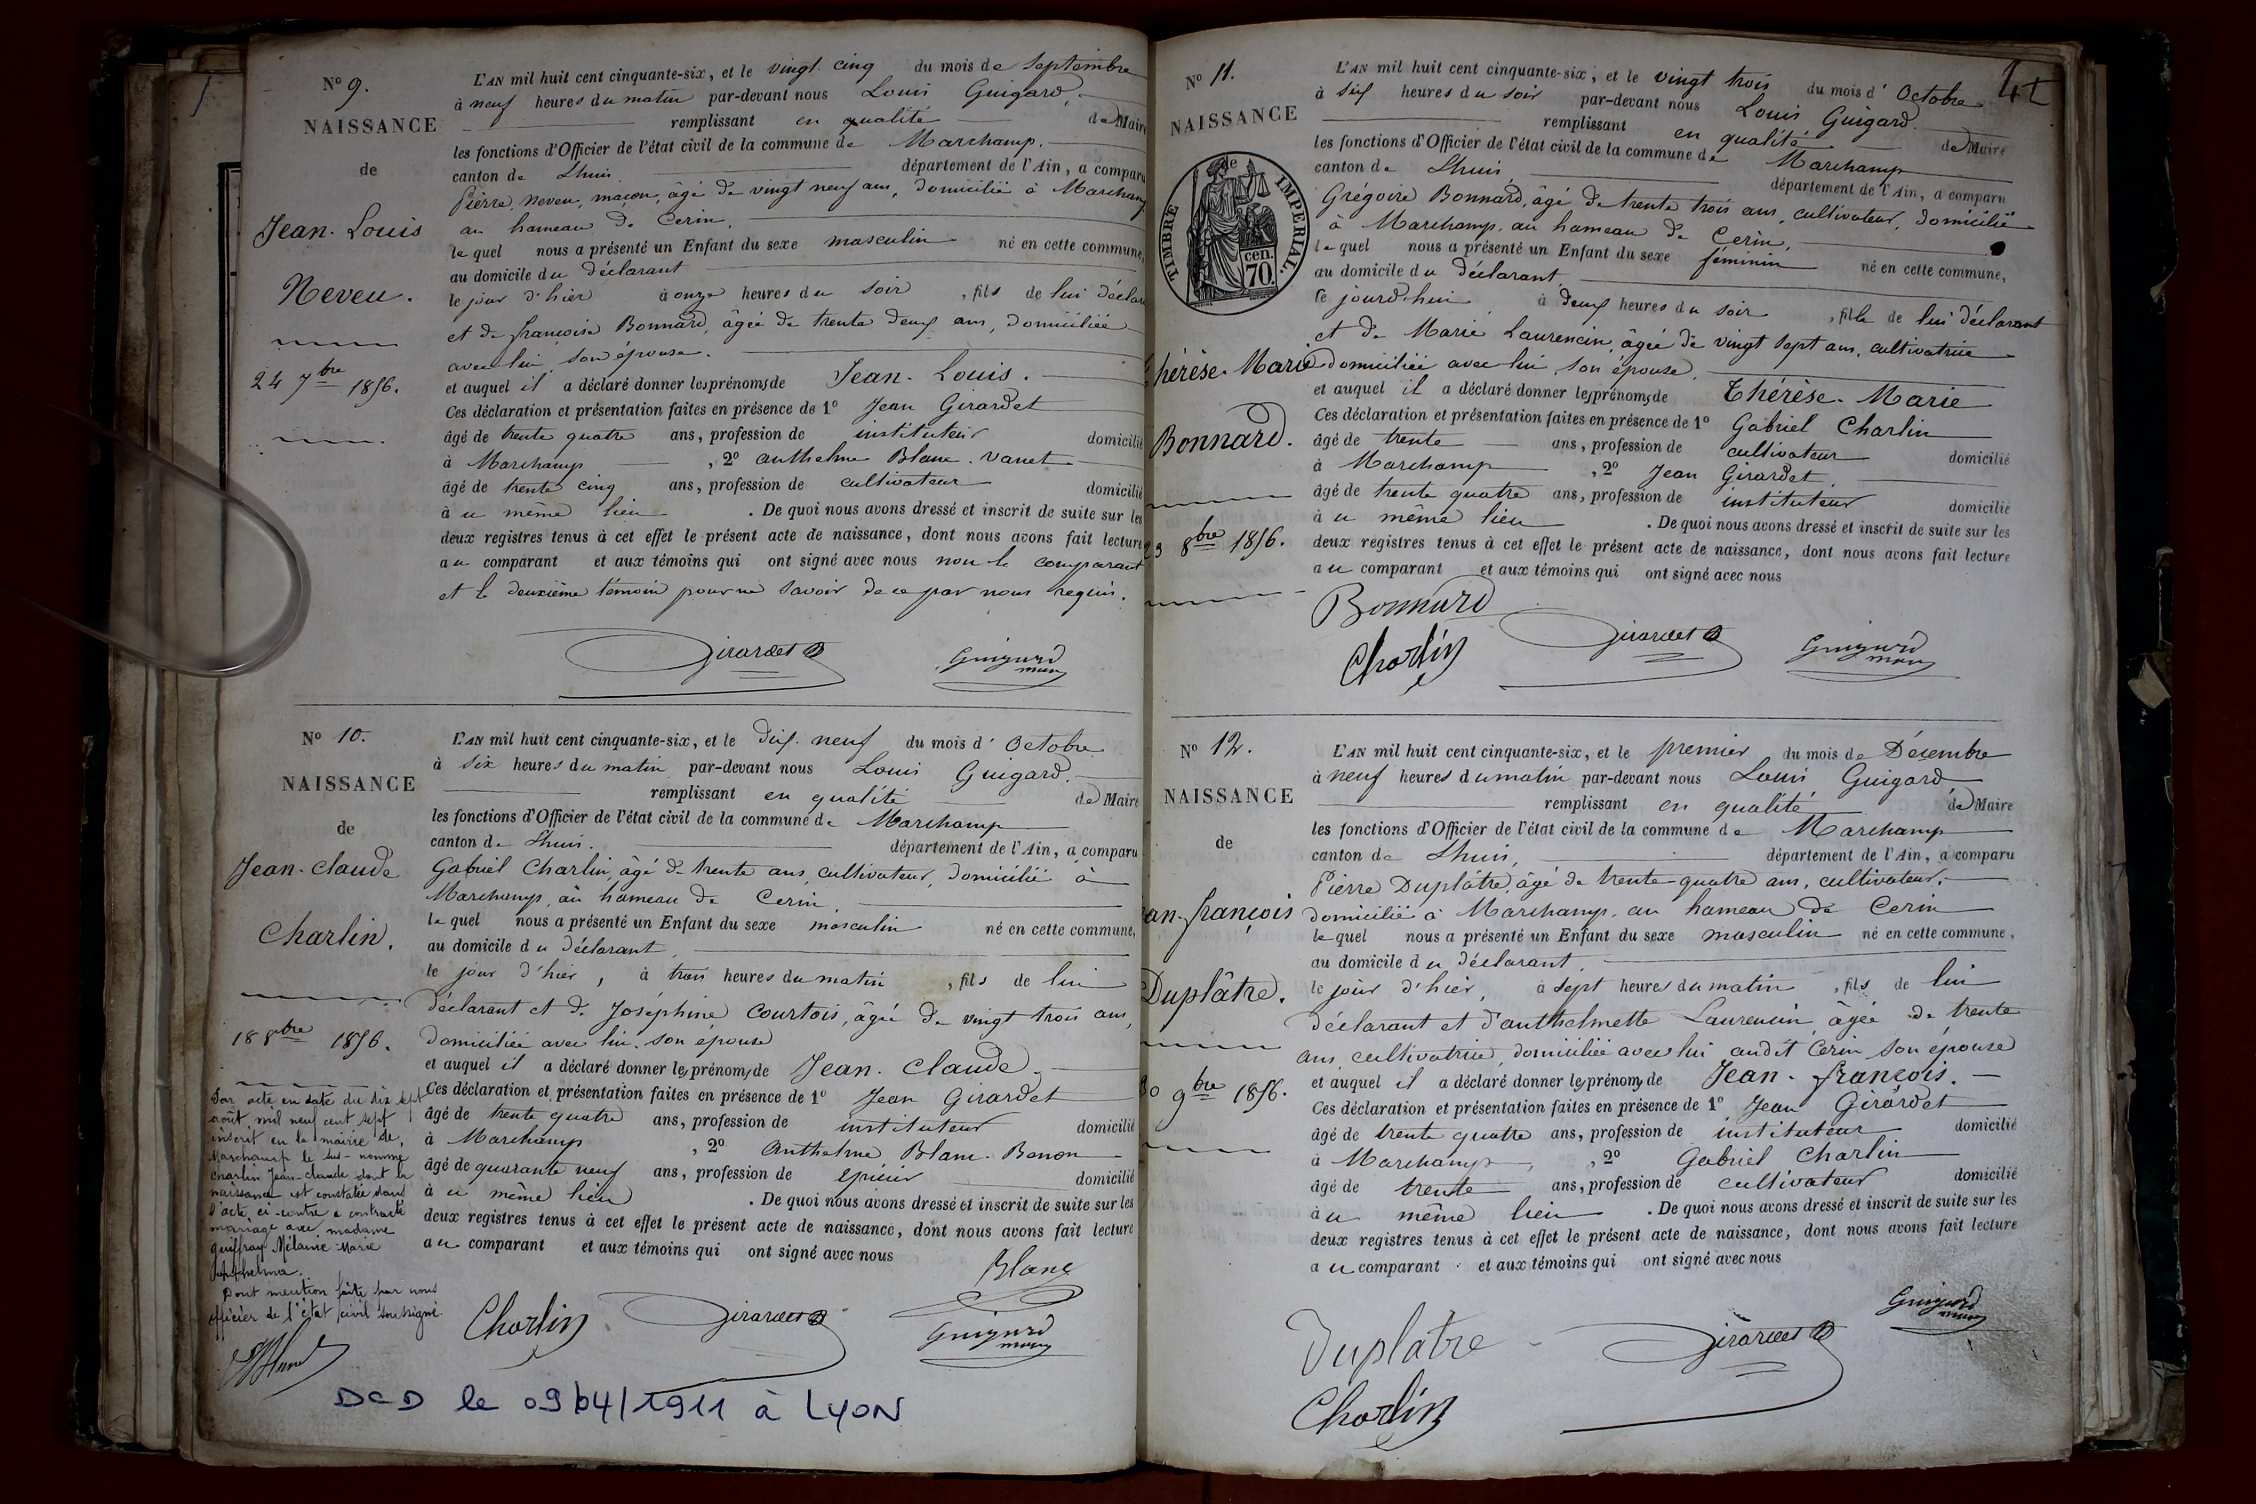 N° 9.
NAISSANCE
de
Jean-Louis
Neveu.
24 7bre 1856.
L'AN mil huit cent cinquante-six, et le vingt cinq du mois de Septembre
à neuf heures du matin par-devant nous Louis Guigard,
remplissant en qualité de Maire
les fonctions d'Officier de l'état civil de la commune de Marchamp.
canton de Lhuis département de l'Ain, a comparu
Pierre Neveu, maçon, âgé de vingt neuf ans, domicilié à Marchamp
au hameau de Cerin.
le quel nous a présenté un Enfant du sexe masculin né en cette commune,
au domicile du déclarant
le jour d'hier à onze heures du soir, fils de lui déclara
et de françoise Bonnard, âgée de trente deux ans, domiciliée
avec lui, son épouse.
et auquel il a déclaré donner les prénoms de Jean-Louis.
Ces déclaration et présentation faites en présence de 1° Jean Girardet
âgé de trente quatre ans, profession de instituteur domicilié
à Marchamp, 2° Anthelme Blanc-Vanet
âgé de trente cinq ans, profession de cultivateur domicilié
à u même lieu. De quoi nous avons dressé et inscrit de suite sur les
deux registres tenus à cet effet le présent acte de naissance, dont nous avons fait lecture
au comparant et aux témoins qui ont signé avec nous non le comparant
et le deuxième témoin pour ne savoir de ce par nous requis.
Girardet Guigard
maire
N° 10.
NAISSANCE
de
Jean-Claude
Charlin.
18 8bre 1856.
Par acte en date du dix sept
août mil neuf cent sept
inscrit en la mairie de
Marchamp le sus-nommé
Charlin Jean-Claude dont la
naissance est constatée dans
l'acte ci-contre a contracté
mariage avec madame
Guiffray Mélanie Marie
Anthelma.
Dont mention faite par nous
officier de l'état civil soussigné
L'AN mil huit cent cinquante-six, et le dix-neuf du mois d'Octobre
à six heures du matin par-devant nous Louis Guigard.
remplissant en qualité de Maire
les fonctions d'Officier de l'état civil de la commune de Marchamp
canton de Lhuis. département de l'Ain, a comparu
Gabriel Charlin, âgé de trente ans, cultivateur, domicilié à
Marchamp, au hameau de Cerin.
le quel nous a présenté un Enfant du sexe masculin né en cette commune,
au domicile du déclarant,
le jour d'hier, à trois heures du matin, fils de lui
déclarant et de Joséphine Courtois, âgée de vingt trois ans,
domiciliée avec lui, son épouse
et auquel il a déclaré donner les prénoms de Jean-Claude.
Ces déclaration et présentation faites en présence de 1° Jean Girardet
âgé de trente quatre ans, profession de instituteur domicilié
à Marchamp, 2° Anthelme Blanc-Benon
âgé de quarante neuf ans, profession de épicier domicilié
à u même lieu. De quoi nous avons dressé et inscrit de suite sur les
deux registres tenus à cet effet le présent acte de naissance, dont nous avons fait lecture
au comparant et aux témoins qui ont signé avec nous
Blanc
Charlin Girardet Guigard
maire
DCD le 09/04/1911 à LYON
N° 11.
NAISSANCE
de
TIMBRE IMPERIAL.
70 cen.
Thérèse-Marie
Bonnard.
23 8bre 1856.
L'AN mil huit cent cinquante-six, et le vingt trois du mois d'Octobre
à six heures du soir par-devant nous Louis Guigard.
remplissant en qualité de Maire
les fonctions d'Officier de l'état civil de la commune de Marchamp
canton de Lhuis, département de l'Ain, a comparu
Grégoire Bonnard, âgé de trente trois ans, cultivateur, domicilié
à Marchamp, au hameau de Cerin.
le quel nous a présenté un Enfant du sexe féminin né en cette commune,
au domicile du déclarant,
le jourd'hui à deux heures du soir, fille de lui déclarant
et de Marie Laurencin, âgée de vingt sept ans, cultivatrice
domiciliée avec lui, son épouse.
et auquel il a déclaré donner les prénoms de Thérèse-Marie
Ces déclaration et présentation faites en présence de 1° Gabriel Charlin
âgé de trente ans, profession de cultivateur domicilié
à Marchamp, 2° Jean Girardet.
âgé de trente quatre ans, profession de instituteur domicilié
à u même lieu. De quoi nous avons dressé et inscrit de suite sur les
deux registres tenus à cet effet le présent acte de naissance, dont nous avons fait lecture
au comparant et aux témoins qui ont signé avec nous
Bonnard
Charlin Girardet Guigard
maire
N° 12.
NAISSANCE
de
an-françois
Duplâtre.
30 9bre 1856.
L'AN mil huit cent cinquante-six, et le premier du mois de Décembre
à neuf heures du matin par-devant nous Louis Guigard
remplissant en qualité de Maire
les fonctions d'Officier de l'état civil de la commune de Marchamp
canton de Lhuis, département de l'Ain, a comparu
Pierre Duplâtre, âgé de trente-quatre ans, cultivateur,
domicilié à Marchamp, au hameau de Cerin
le quel nous a présenté un Enfant du sexe masculin né en cette commune,
au domicile du déclarant.
le jour d'hier, à sept heures du matin, fils de lui
déclarant et d'anthelmette Laurencin âgée de trente
ans, cultivatrice, domiciliée avec lui audit Cerin son épouse
et auquel il a déclaré donner les prénoms de Jean-françois.
Ces déclaration et présentation faites en présence de 1° Jean Girardet
âgé de trente quatre ans, profession de instituteur domicilié
à Marchamp, 2° Gabriel Charlin
âgé de trente ans, profession de cultivateur domicilié
à u même lieu. De quoi nous avons dressé et inscrit de suite sur les
deux registres tenus à cet effet le présent acte de naissance, dont nous avons fait lecture
au comparant et aux témoins qui ont signé avec nous
Duplatre Girardet Guigard
maire
Charlin